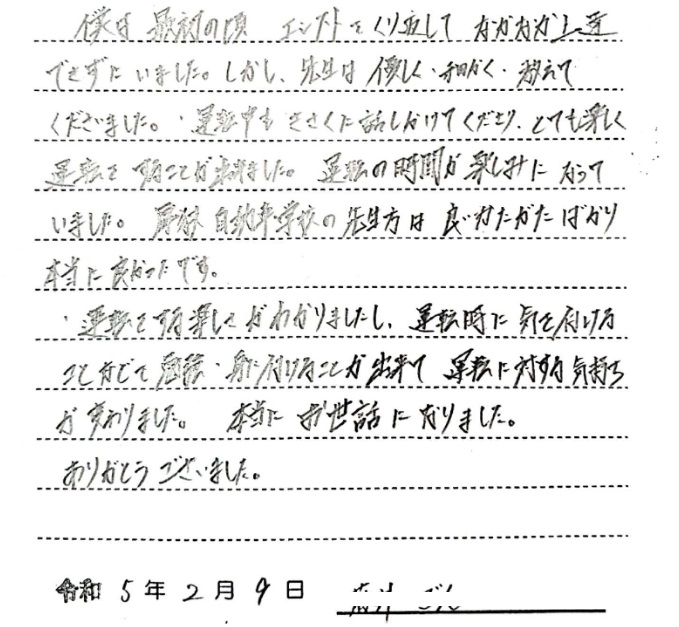 僕は 最初の頃 エンストをくり返して なかなか上達
できずにいました。しかし、先生は優しく・細かく・教えて
くださいました。・運転中も きさくに話しかけてくださり、とても楽しく
運転をすることが出来ました。 運転の時間が楽しみになって
いました。 自動車学校の先生方は 良いかたがたばかり
本当に良かったです。
・運転をする楽しさがわかりましたし、運転時に気を付ける
ことなどを ・身に付けることが出来て 運転に対する気持ち
が変わりました。 本当に お世話になりました。
ありがとうございました。
令和 5年 2月 9日